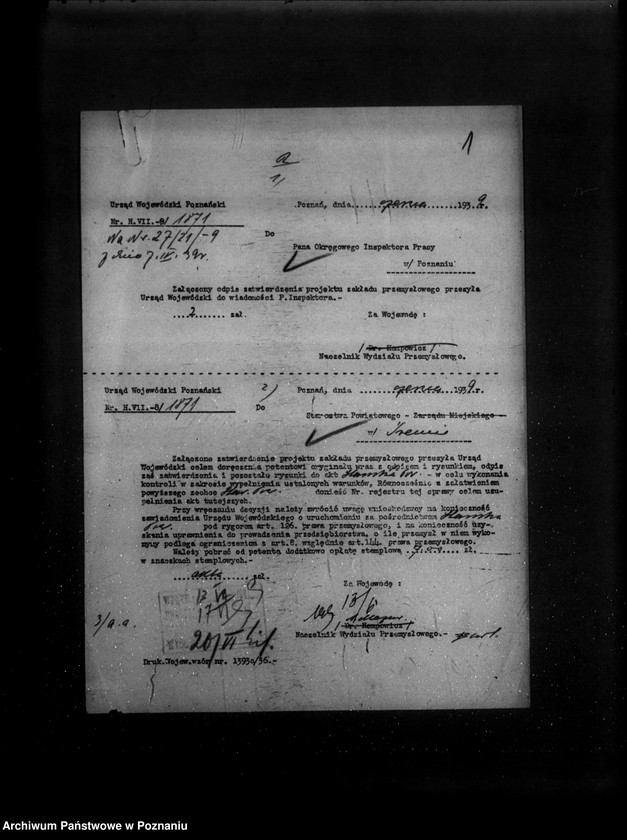 1
a
1,
Urząd Wojewódzki Poznański
Poznań, dnia....czerwca......1939.r.
Nr. H.VII.-8/ 1871
Na Nr. 27/21/-9
z dnia 7.IV.39r.
Do
Pana Okręgowego Inspektora Pracy
w/ Poznaniu
Załączony odpis zatwierdzenia projektu zakładu przemysłowego przesyła
Urząd Wojewódzki do wiadomości P.Inspektora.-
....2...... zał.
Za Wojewodę :
/ Dr. Hempowicz /
Naczelnik Wydziału Przemysłowego.
Urząd Wojewódzki Poznański
2)
Poznań, dnia .......czerwca.....1939.r.
Nr. H.VII.-8/ 1871
Do
Starostwa Powiatowego - Zarządu Miejskiego -
w/ Śremie
Załączone zatwierdzenie projektu zakładu przemysłowego przesyła Urząd
Wojewódzki celem doręczenia petentowi oryginału wraz z odpisem i rysunkiem, odpis
zaś zatwierdzenia i pozostałe rysunki do akt - w celu wykonania
kontroli w zakresie wypełnienia ustalonych warunków, Równocześnie z załatwieniem
powyższego zechce donieść Nr. rejestru tej sprawy celem uzu-
pełnienia akt tutejszych.
Przy wręczaniu decyzji należy zwrócić uwagę wnioskodawcy na konieczność
zawiadomienia Urzędu Wojewódzkiego o uruchomieniu za pośrednictwem
pod rygorem art. 126. prawa przemysłowego, i na konieczność uzy-
skania uprawnienia do prowadzenia przedsiębiorstwa, o ile przemysł w nim wyko-
nywany podlega ograniczeniom z art.8. względnie art.144. prawa przemysłowego.
Należy pobrać od petenta dodatkowo opłatę stemplową zł.
w znaczkach stemplowych.-
zał.
Za Wojewodę :
13/6
/ Dr. Hempowicz /
Naczelnik Wydziału Przemysłowego.-
3/a.a.
13 VI
17 VI
20/VI
Druk.Wojew.wzór nr. 1393c/36.-
Archiwum Państwowe w Poznaniu